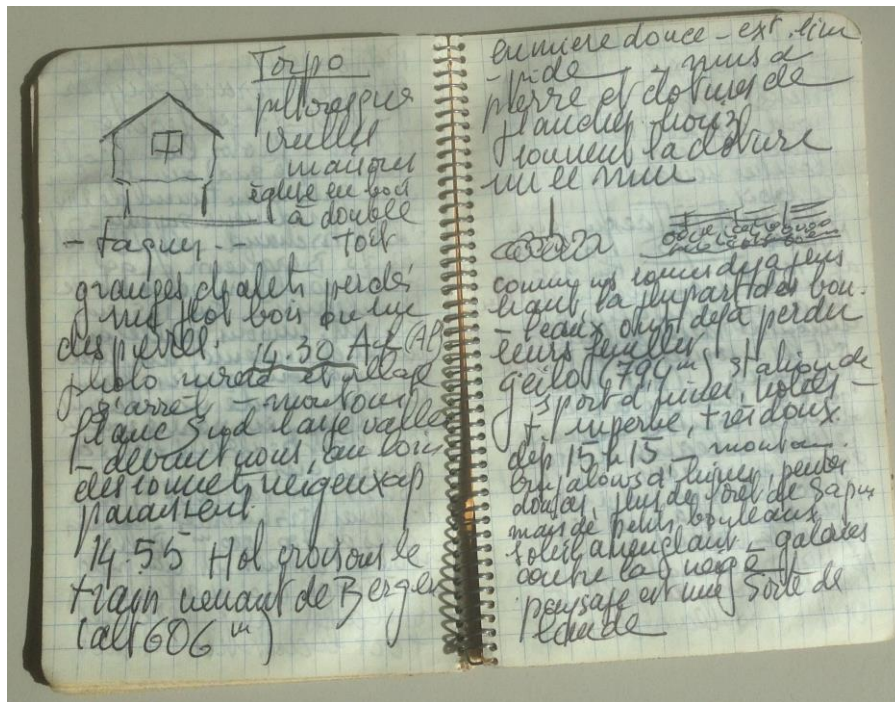 Torpo
pittoresque
vieilles
maisons
église en bois
à double
- toit
granges chalets perdés
des pierres. 14.30 Ål (
photo et village
s'arrêt - montons
flanc Sud large vallée
- devant nous, au loin
des sommets neigeux ap
paraissent
14.55 Hol croisons le
train venant de Bergen
(alt 606 m)
lumiere douce - ext. lim
- pide - murs de
pierre et clotures de
planches
la cloture
sur le mur
comme nous sommes deja
haut, la plupart des bou-
- leaux ont deja perdu
leurs feuilles
geilo (794 m) station de
sport d'hiver, hotels -
+ superbe, + très doux
dep 15 h 15 - montons.
pentes
douces, plus de foret de sapins
mais de petits bouleaux
soleil aveuglant - galeries
contre la neige
paysage est une sorte de
lande